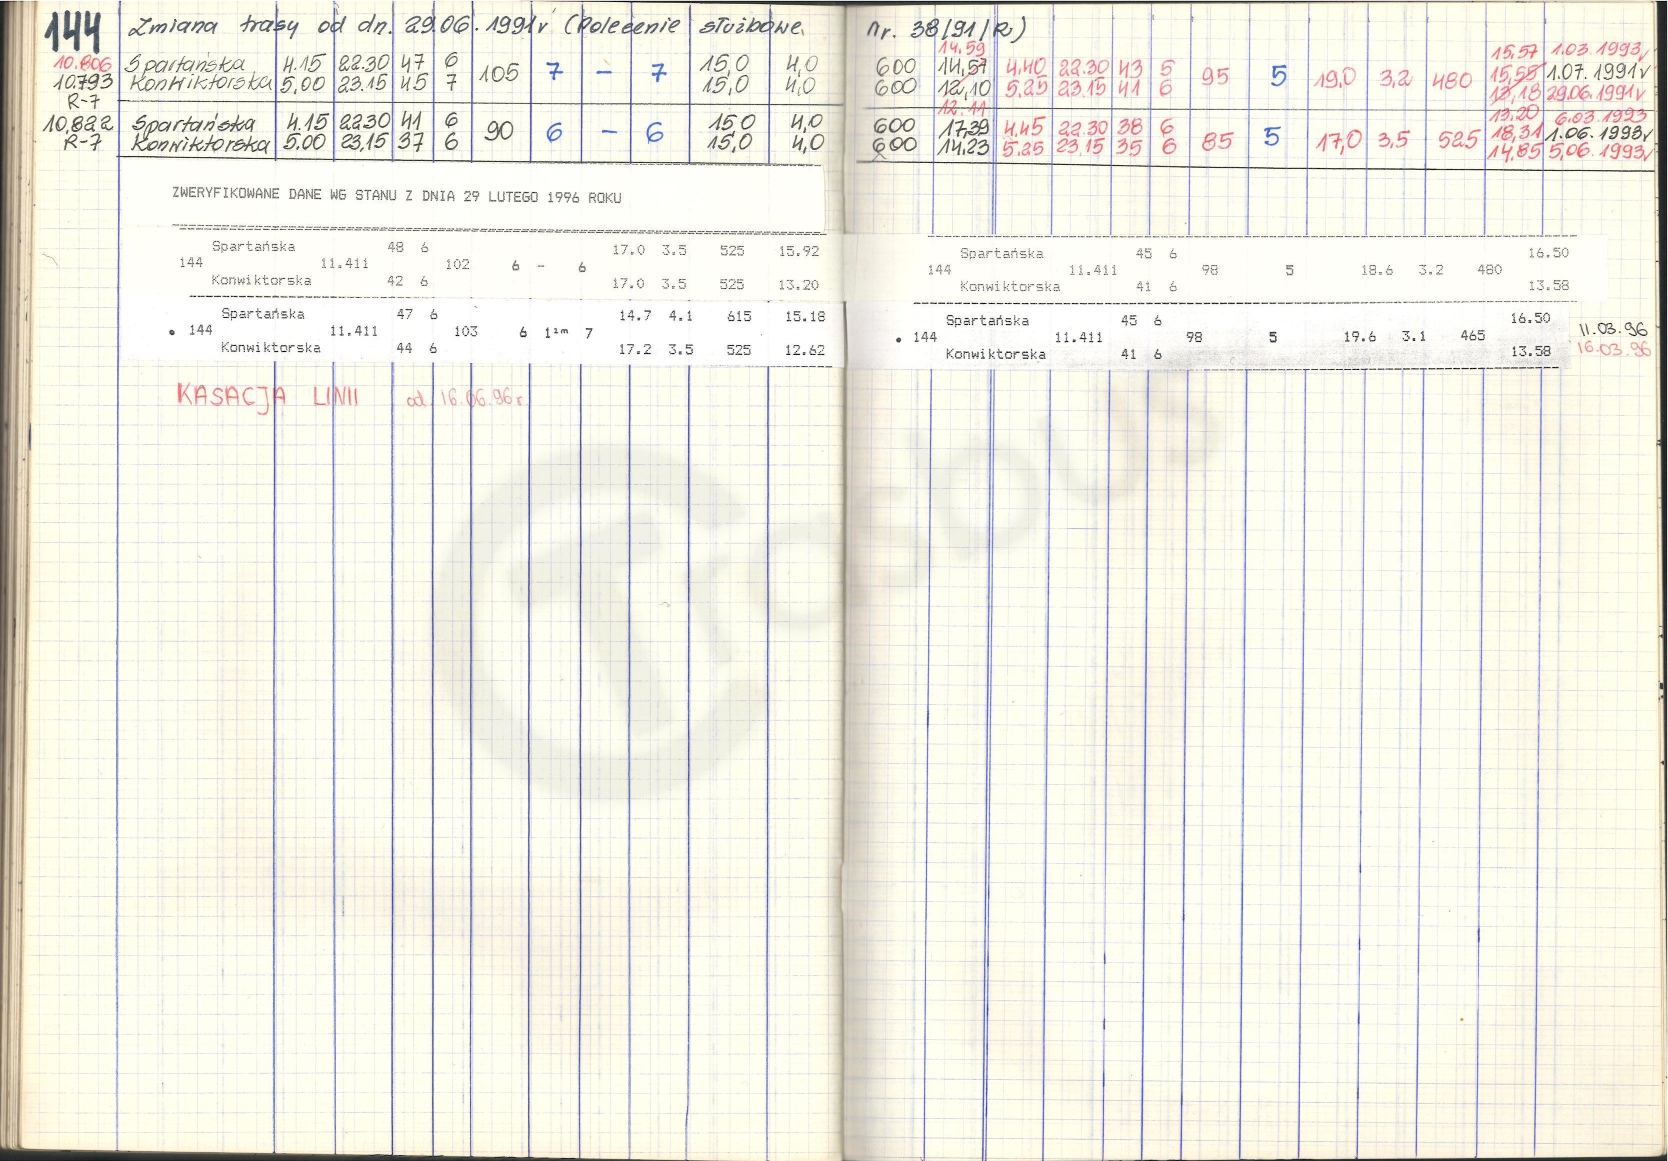 144 Zmiana trasy od dn. 29.06.1991r (Polecenie służbowe. nr. 38/91/R)
14.59 15,57 1.03.1993r
10.806 Spartańska 4.15 22.30 47 6 105 7 – 7 15,0 4,0 600 14,57 4.40 22.30 43 5 95 5 19,0 3,2 480 15,55 1.07.1991r
10.793 Konwiktorska 5,00 23.15 45 7 15,0 4,0 600 12,10 5.25 23.15 41 6 13,18 29.06.1991r
R-7 12.11 13,20 6.03.1993
10,822 Spartańska 4.15 22.30 41 6 90 6 – 6 15,0 4,0 600 17,39 4.45 22.30 38 6 85 5 17,0 3,5 525 18,31 1.06.1993r
R-7 Konwiktorska 5.00 23,15 37 6 15,0 4,0 600 14.23 5.25 23.15 35 6 14,85 5,06.1993r
ZWERYFIKOWANE DANE WG STANU Z DNIA 29 LUTEGO 1996 ROKU
Spartańska 48 6 17.0 3.5 525 15.92 Spartańska 45 6 16.50
144 11.411 102 6 – 6 144 11.411 98 5 18.6 3.2 480
Konwiktorska 42 6 17.0 3.5 525 13.20 Konwiktorska 41 6 13.58
Spartańska 47 6 14.7 4.1 615 15.18 Spartańska 45 6 16.50
• 144 11.411 103 6 1²ᵐ 7 • 144 11.411 98 5 19.6 3.1 465 11.03.96
Konwiktorska 44 6 17.2 3.5 525 12.62 Konwiktorska 41 6 13.58 16.03.96
KASACJA LINII od 16.06.96r.
Trasbus